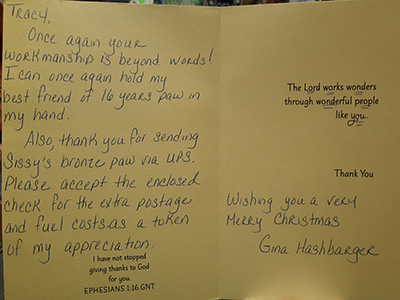 Tracy,
Once again your
workmanship is beyond words!
I can once again hold my
best friend of 16 years paw in
my hand.
Also, thank you for sending
Sissy's bronze paw via UPS.
Please accept the enclosed
check for the extra postage
and fuel costs as a token
of my appreciation.
I have not stopped
giving thanks to God
for you.
EPHESIANS 1:16 GNT
The Lord works wonders
through wonderful people
like you.
Thank You
Wishing you a very
Merry Christmas
Gina Hashbarger